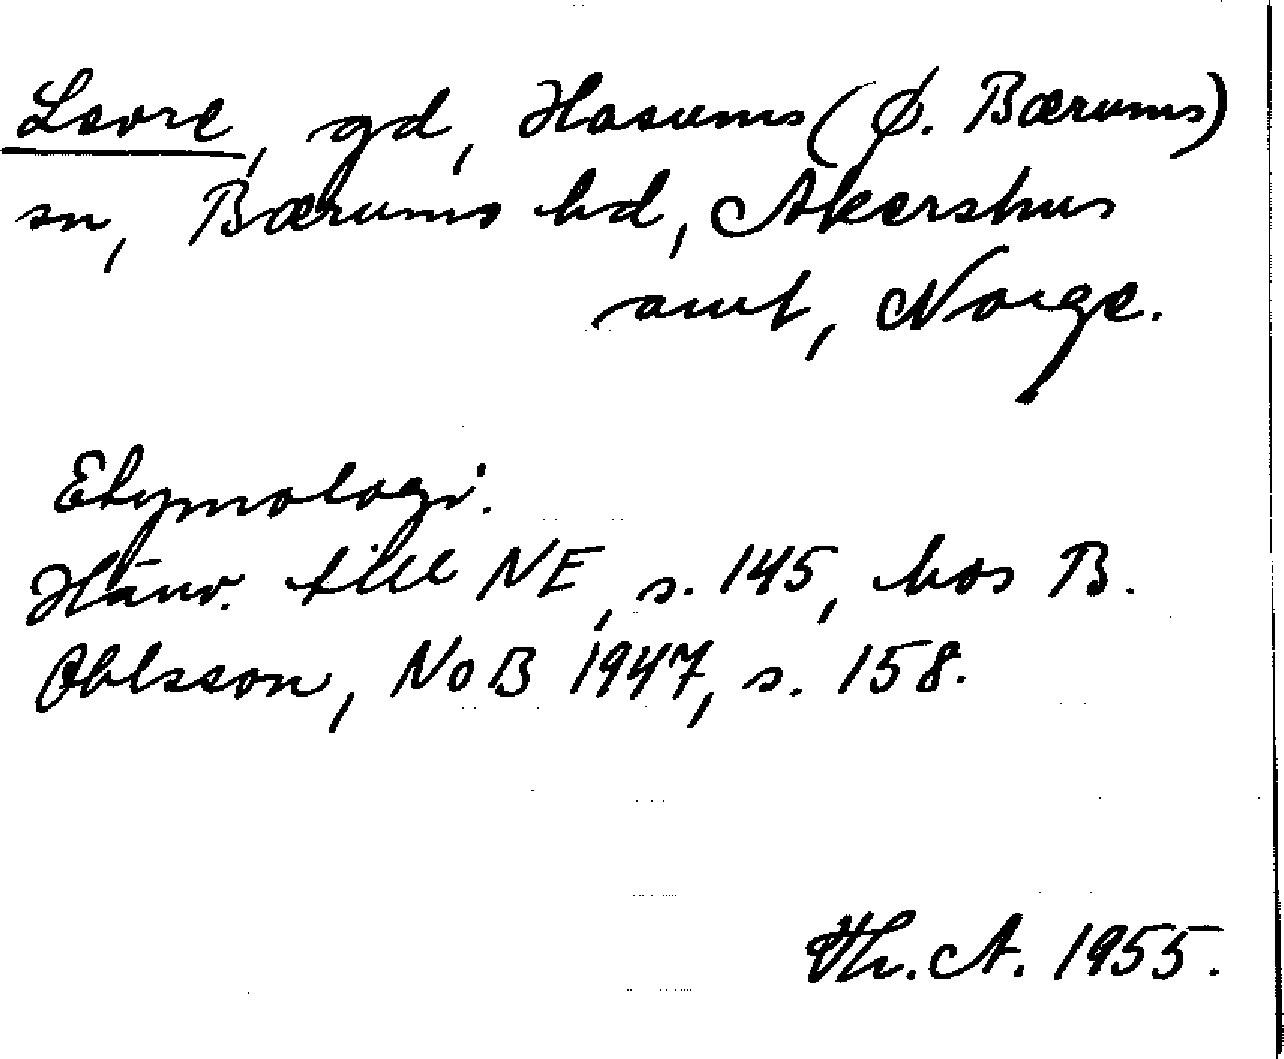 Levre, gd, Hasums (Ø. Bærums)
sn, Bærums hd, Akershus
amt, Norge.
Etymologi.
Hänv. till NE, s. 145, hos B.
Ohlsson, NoB 1947, s. 158.
Th. A. 1955.